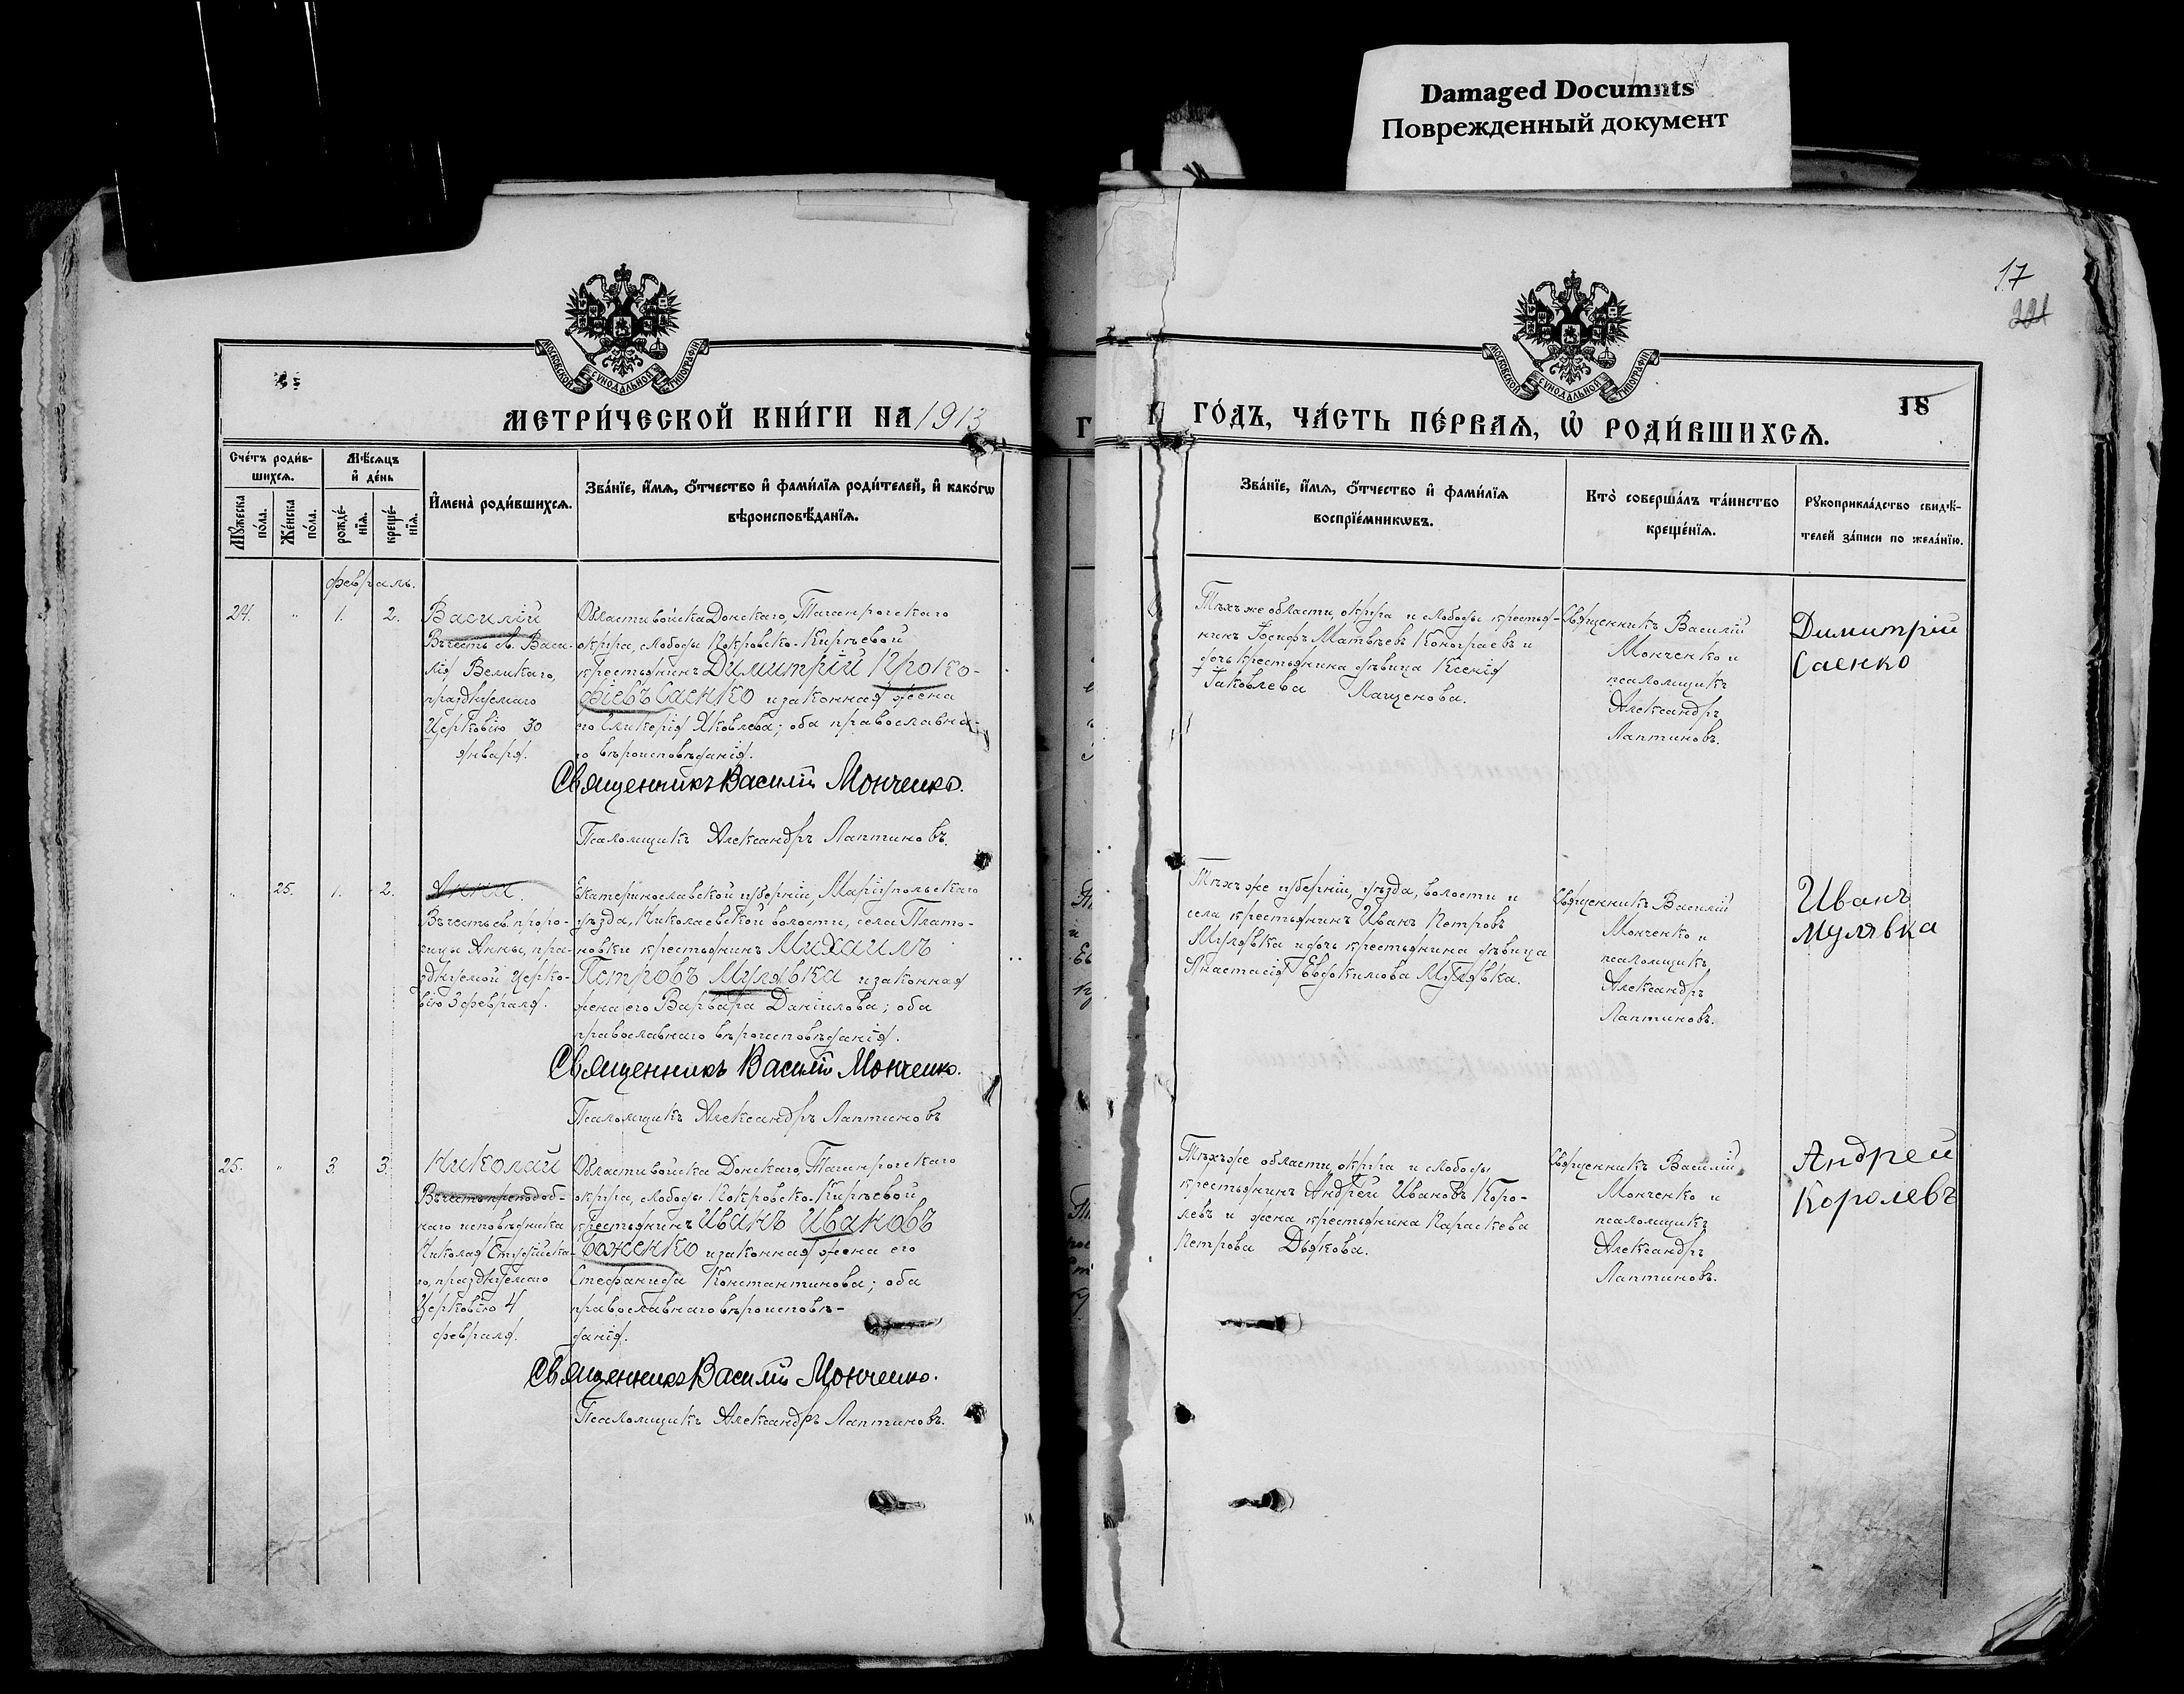 Damaged Documnts
Поврежденный документ
17
221
МОСКОВСКОЙ СѴНОДАЛЬНОЙ ТИПОГРАФІИ
МОСКОВСКОЙ СѴНОДАЛЬНОЙ ТИПОГРАФІИ
18
МЕТРИ́ЧЕСКОЙ КНИ́ГИ НА 1913
ГО́ДЪ, ЧА́СТЬ ПЕ́РВАѦ, Ѡ҆ РОДИ́ВШИХСѦ.
Сче́тъ роди́в-
шихсѧ.
Мꙋ́жеска по́ла.
Же́нска по́ла.
Мѣ́сѧцъ
и҆ де́нь
рожде́-нїѧ.
креще́-нїѧ.
И҆мена̀ роди́вшихсѧ.
Зва́нїе, и҆́мѧ, ѻ҆́тчество и҆ фами́лїѧ роди́телей, и҆ како́гѡ
вѣроисповѣ́данїѧ.
Зва́нїе, и҆́мѧ, ѻ҆́тчество и҆ фами́лїѧ
воспрїе́мникѡвъ.
Кто̀ соверша́лъ та́инство
креще́нїѧ.
Рꙋкоприкла́дство свидѣ́-
телей за́писи по жела́нїю.
февраль.
24. " 1. 2.
Василій
Въ честь св. Васи-
лія Великаго,
празднуемаго
Церковію 30
января.
Области войска Донскаго, Таганрогскаго
округа, слободы Покровско-Киреевой
крестьянинъ Димитрій Проко-
фіевъ Саенко и законная жена
его Гликерія Яковлева; оба православна-
го вѣроисповѣданія.
Священникъ Василій Монченко.
Псаломщикъ Александръ Лаптиновъ.
Тѣхъ же области, округа и слободы крестья-
нинъ Іосифъ Матвѣевъ Конограевъ и
дочь крестьянина дѣвица Ксенія
Іаковлева Лащенова.
Священникъ Василій
Монченко и
псаломщикъ
Александръ
Лаптиновъ.
Димитрій
Саенко
" 25. 1. 2.
Анна.
Въ честь св. проро-
чицы Анны, пра-
зднуемой Церко-
вію 3 февраля.
Екатеринославской губерніи, Маріупольскаго
уѣзда, Николаевской волости, села Плато-
новки крестьянинъ Михаилъ
Петровъ Мулявка и законная
жена его Варвара Даніилова; оба
православнаго вѣроисповѣданія.
Священникъ Василій Монченко.
Псаломщикъ Александръ Лаптиновъ
Тѣхъ же губерніи, уѣзда, волости и
села крестьянинъ Иванъ Петровъ
Мулявка и дочь крестьянина дѣвица
Анастасія Евфокимова Мулявка.
Священникъ Василій
Монченко и
псаломщикъ
Александръ
Лаптиновъ.
Иванъ
Мулявка
25. " 3. 3.
Николай
Въ честь преподоб-
наго исповѣдника
Николая Студійска-
го, празднуемаго
Церковію 4
февраля.
Области войска Донскаго, Таганрогскаго
округа, слободы Покровско-Киреевой
крестьянинъ Иванъ Ивановъ
Боженко и законная жена его
Стефанида Константинова; оба
православнаго вѣроисповѣ-
данія.
Священникъ Василій Монченко.
Псаломщикъ Александръ Лаптиновъ.
Тѣхъ же области, округа и слободы
крестьянинъ Андрей Ивановъ Коро-
левъ и жена крестьянина Параскева
Петрова Дьякова.
Священникъ Василій
Монченко и
псаломщикъ
Александръ
Лаптиновъ.
Андрей
Королевъ